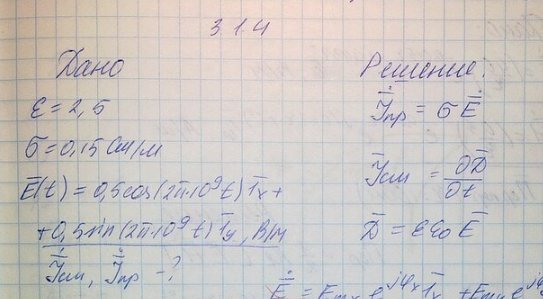 3.1.4
Дано
ε = 2,5
σ = 0,15 См/м
E̅(t) = 0,5cos(2π·10⁹t) 1̅x +
+0,5sin(2π·10⁹t) 1̅y, В/м
J̅см, J̅пр - ?
Решение.
J̅пр = σ E̅
J̅см = ∂D̅/∂t
D̅ = εε₀ E̅
E̅ = Emx e^jφx 1̅x + Emy e^jφ